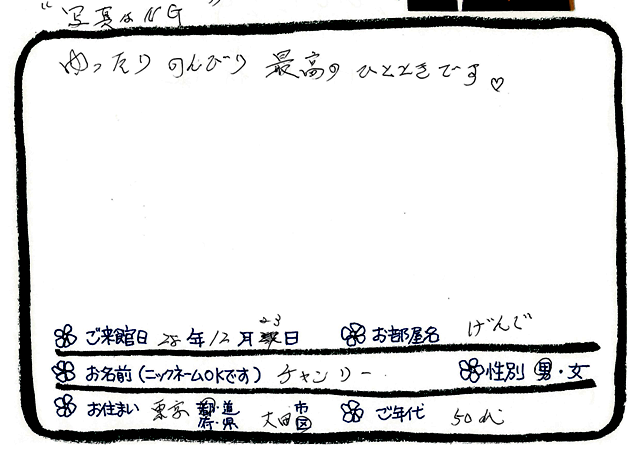 "写真はNG"
ゆったり のんびり 最高の ひとときです♡
ご来館日 28年12月23日 お部屋名 げんで
お名前(ニックネームOKです) チャンリー 性別 男・女
お住まい 東京 都・道府・県 大田 市区 ご年代 50代